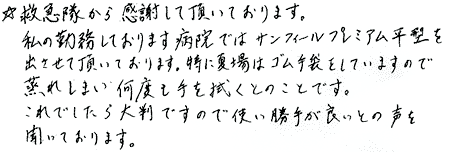 ☆救急隊から感謝して頂いております。
私の勤務しております病院ではサンフィールプレミアム平型を
出させて頂いております。特に夏場はゴム手袋をしていますので
蒸れしまい何度も手を拭くとのことです。
これでしたら大判ですので使い勝手が良いとの声を
聞いております。